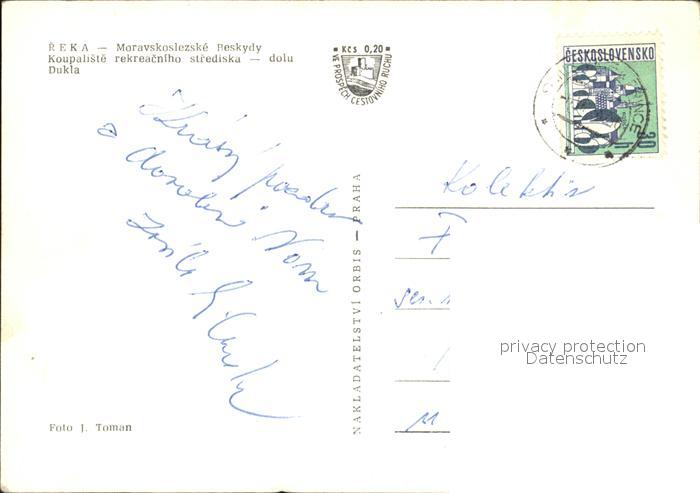 ŘEKA — Moravskoslezské Beskydy
Koupaliště rekreačního střediska — dolu
Dukla
Kčs 0,20
VE PROSPĚCH CESTOVNÍHO RUCHU
ČESKOSLOVENSKO
30 h
Krásný pozdrav
z dovolené Vám
Kolektiv
F
M
NAKLADATELSTVÍ ORBIS — PRAHA
privacy protection
Datenschutz
Foto J. Toman